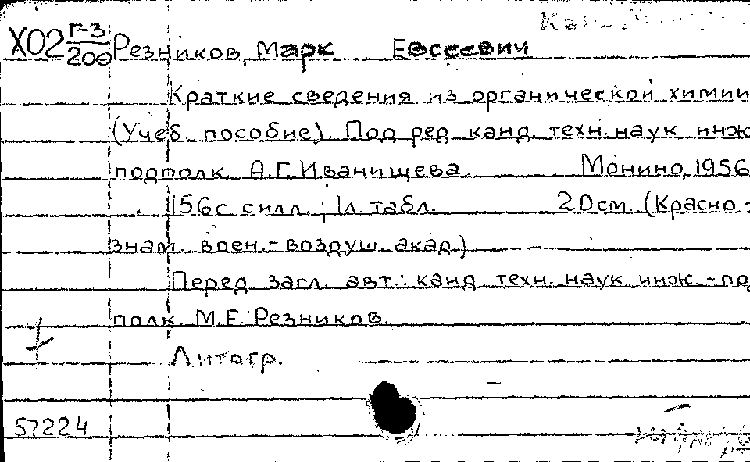 Х02 Г-3/200 Резников, Марк Евсеевич
Краткие сведения из органической химии
(Учеб. пособие). Под ред. канд. техн. наук инж
подполк. А.Г. Иванищева. Монино, 1956
156с. силл.; 1л. табл. 20см. (Красно-
знам. воен.-воздуш. акад.)
Перед загл. авт.: канд. техн. наук инж.-под
полк. М.Е. Резников.
Литогр.
57224